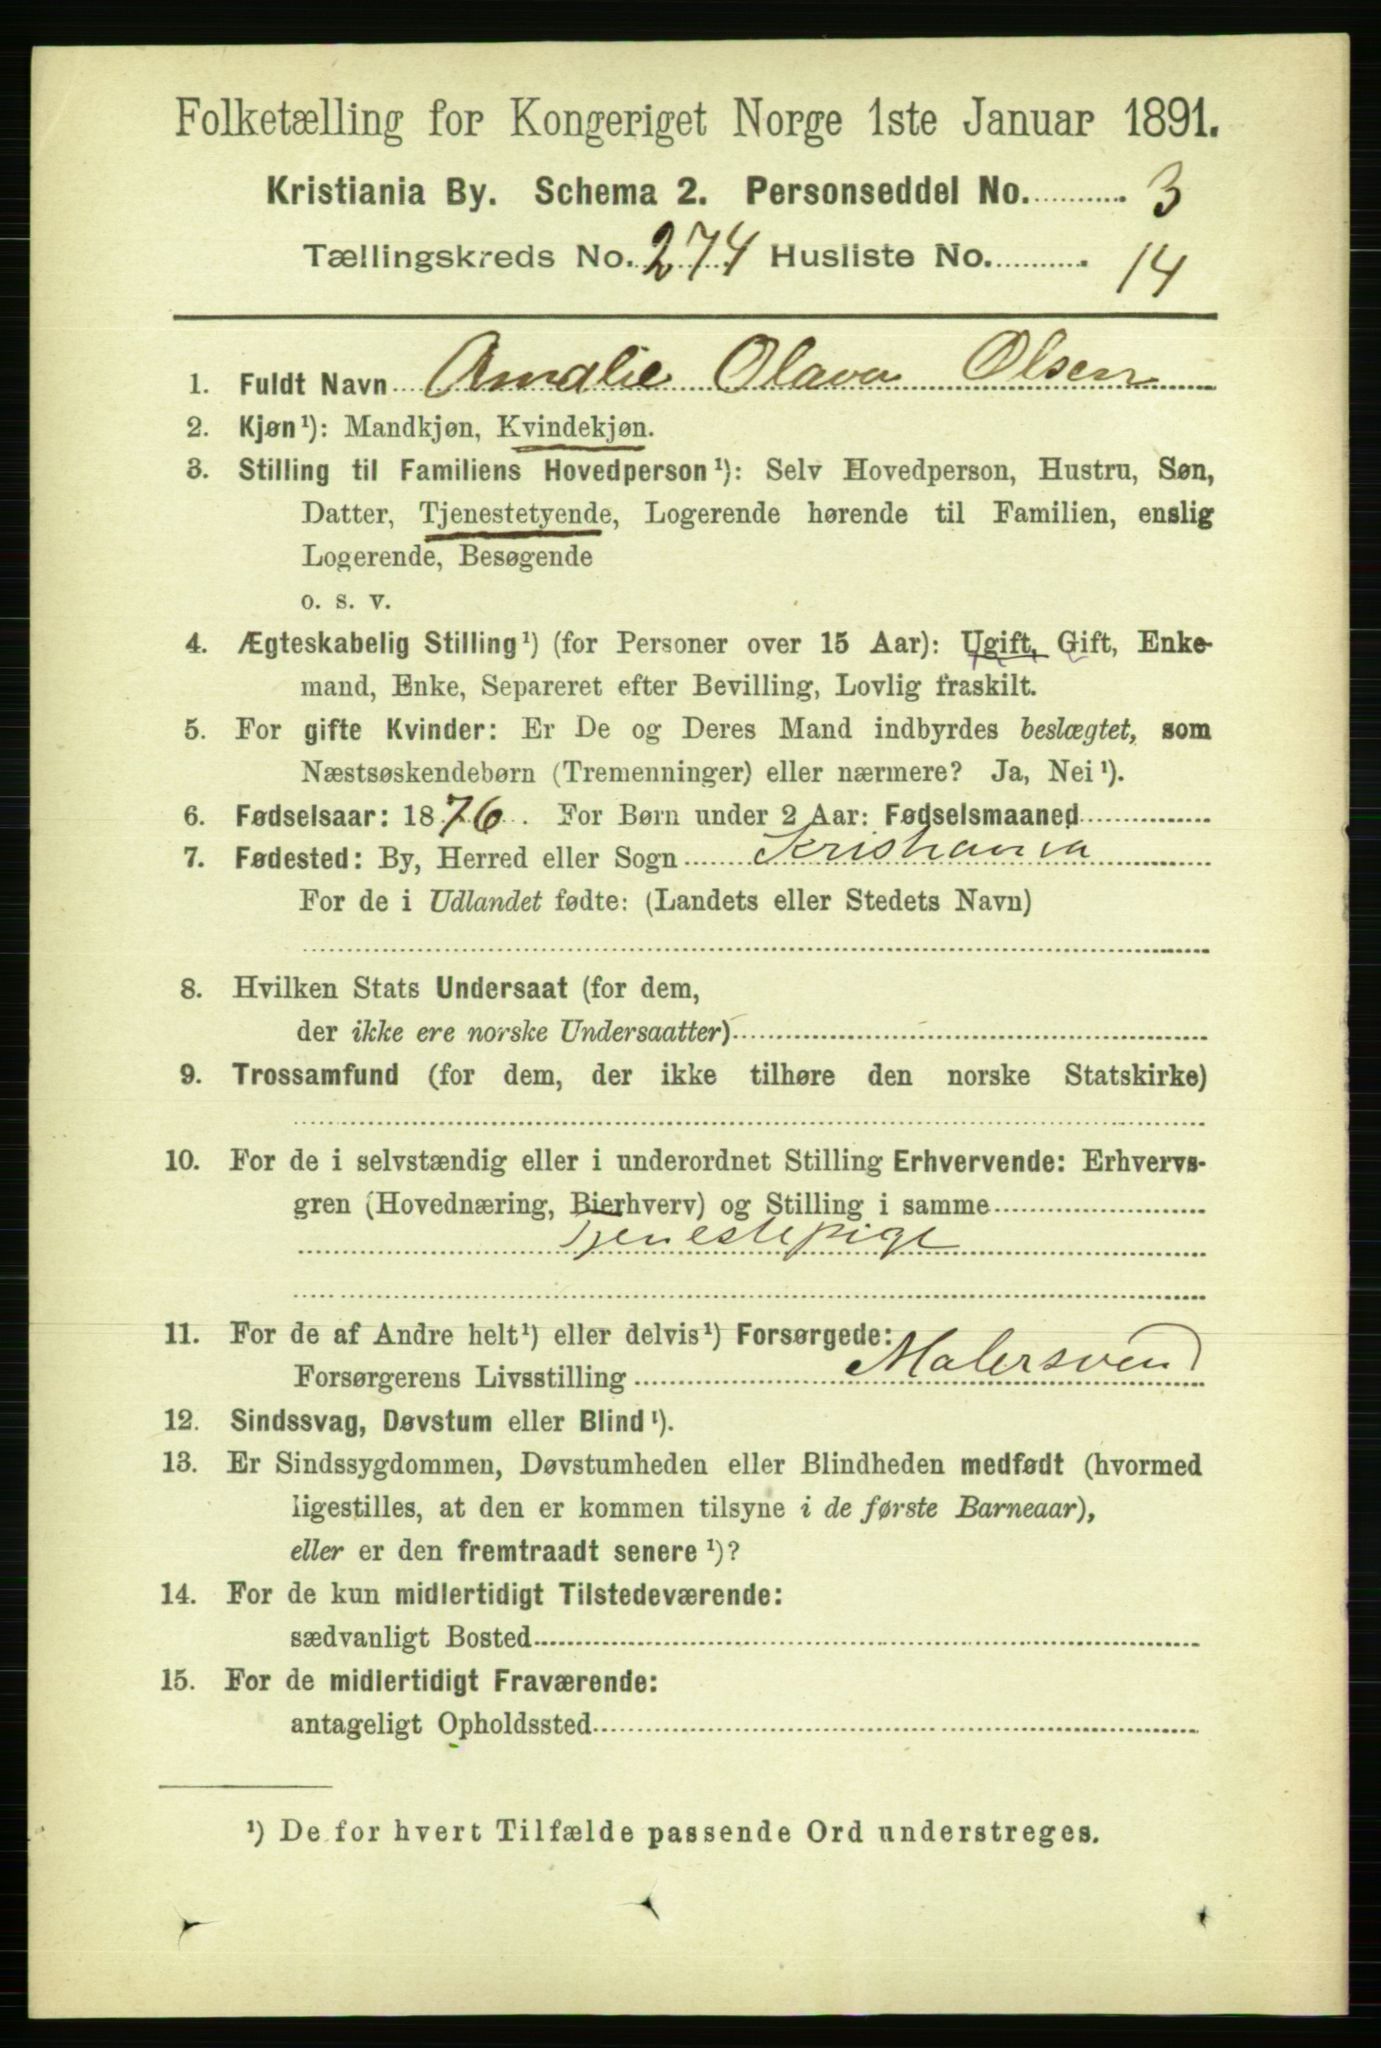 Folketælling for Kongeriget Norge 1ste Januar 1891.
Kristiania By. Schema 2. Personseddel No. 3
Tællingskreds No. 274 Husliste No. 14
1. Fuldt Navn Amalie Olava Olsen
2. Kjøn¹): Mandkjøn, Kvindekjøn.
3. Stilling til Familiens Hovedperson¹): Selv Hovedperson, Hustru, Søn,
Datter, Tjenestetyende, Logerende hørende til Familien, enslig
Logerende, Besøgende
o. s. v.
4. Ægteskabelig Stilling¹) (for Personer over 15 Aar): Ugift, Gift, Enke-
mand, Enke, Separeret efter Bevilling, Lovlig fraskilt.
5. For gifte Kvinder: Er De og Deres Mand indbyrdes beslægtet, som
Næstsøskendebørn (Tremenninger) eller nærmere? Ja, Nei¹).
6. Fødselsaar: 1876. For Børn under 2 Aar: Fødselsmaaned
7. Fødested: By, Herred eller Sogn Kristiania
For de i Udlandet fødte: (Landets eller Stedets Navn)
8. Hvilken Stats Undersaat (for dem,
der ikke ere norske Undersaatter)
9. Trossamfund (for dem, der ikke tilhøre den norske Statskirke)
10. For de i selvstændig eller i underordnet Stilling Erhvervende: Erhvervs-
gren (Hovednæring, Bierhverv) og Stilling i samme
Tjenestepige
11. For de af Andre helt¹) eller delvis¹) Forsørgede:
Forsørgerens Livsstilling Malersvend
12. Sindssvag, Døvstum eller Blind¹).
13. Er Sindssygdommen, Døvstumheden eller Blindheden medfødt (hvormed
ligestilles, at den er kommen tilsyne i de første Barneaar),
eller er den fremtraadt senere¹)?
14. For de kun midlertidigt Tilstedeværende:
sædvanligt Bosted
15. For de midlertidigt Fraværende:
antageligt Opholdssted
¹) De for hvert Tilfælde passende Ord understreges.